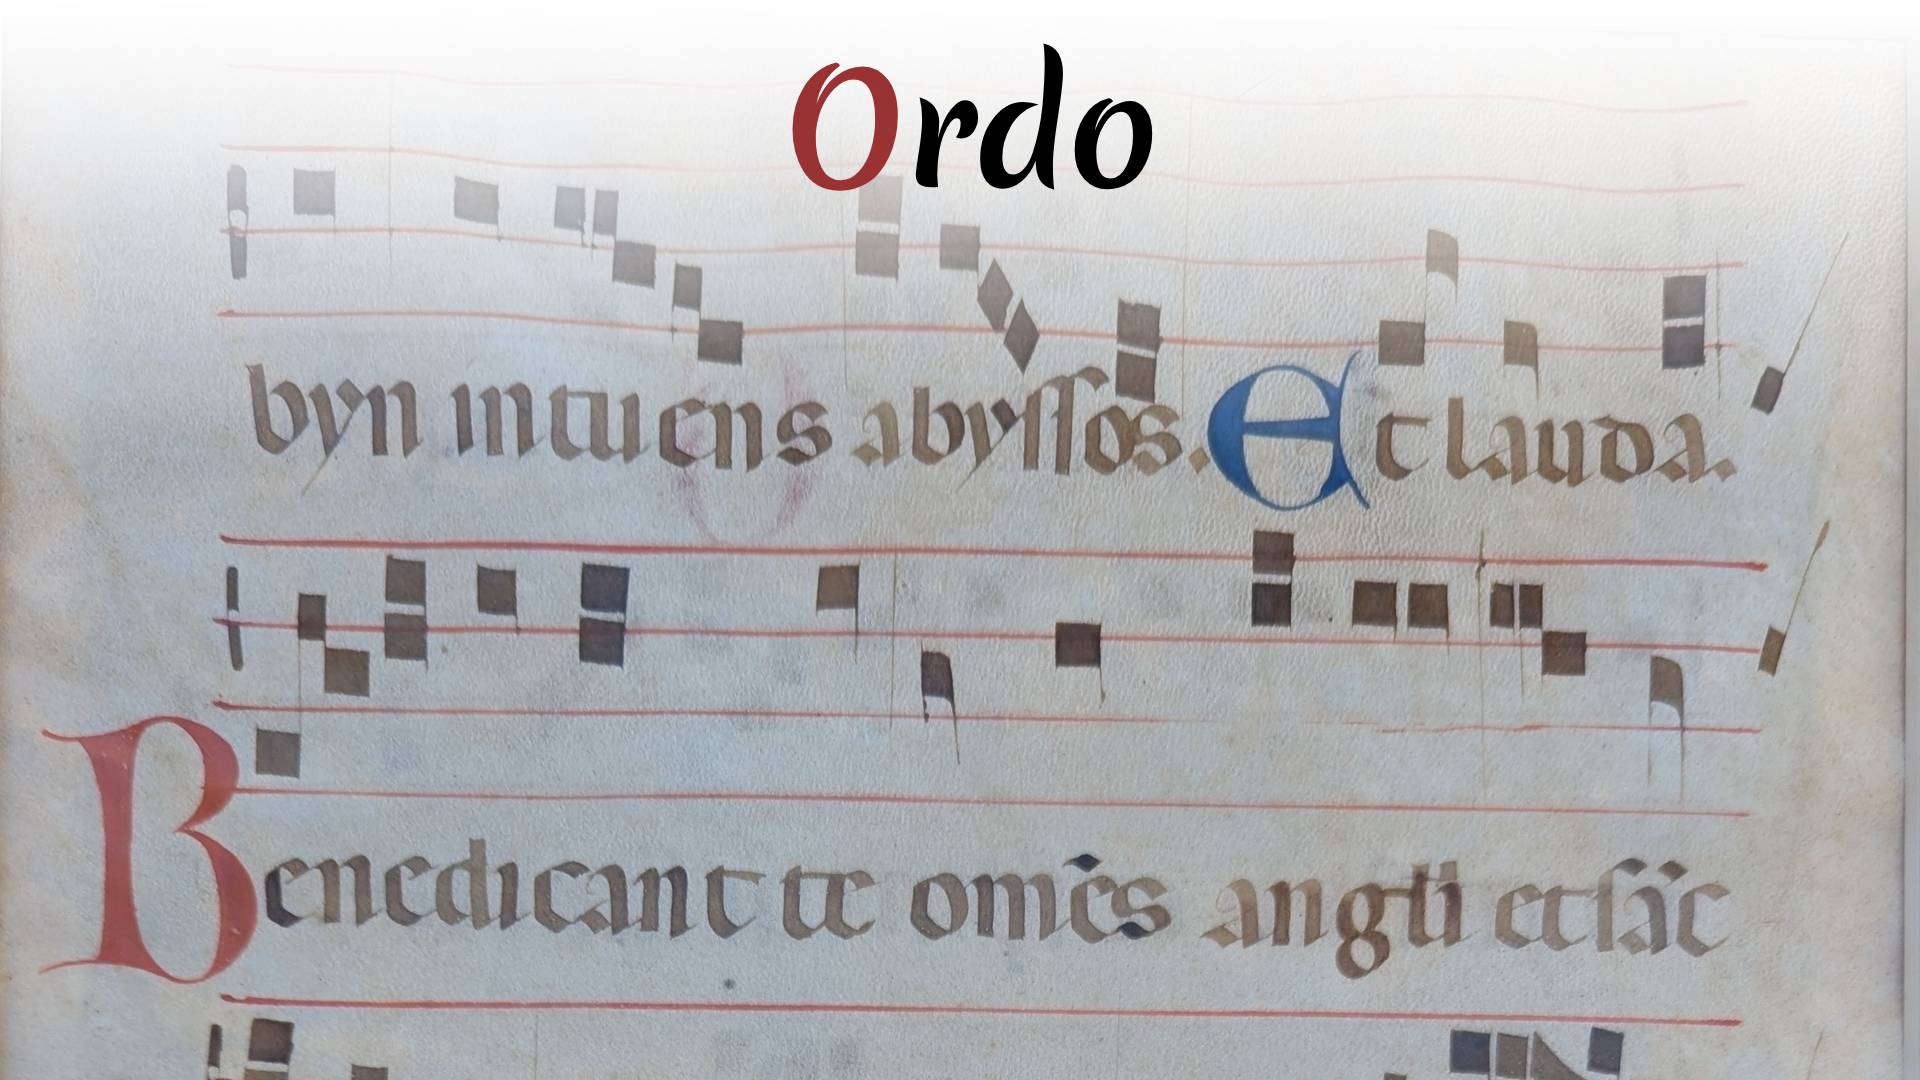 Ordo
byn intuens abyssos. Et lauda.
Benedicant te om̄es angli et sāc